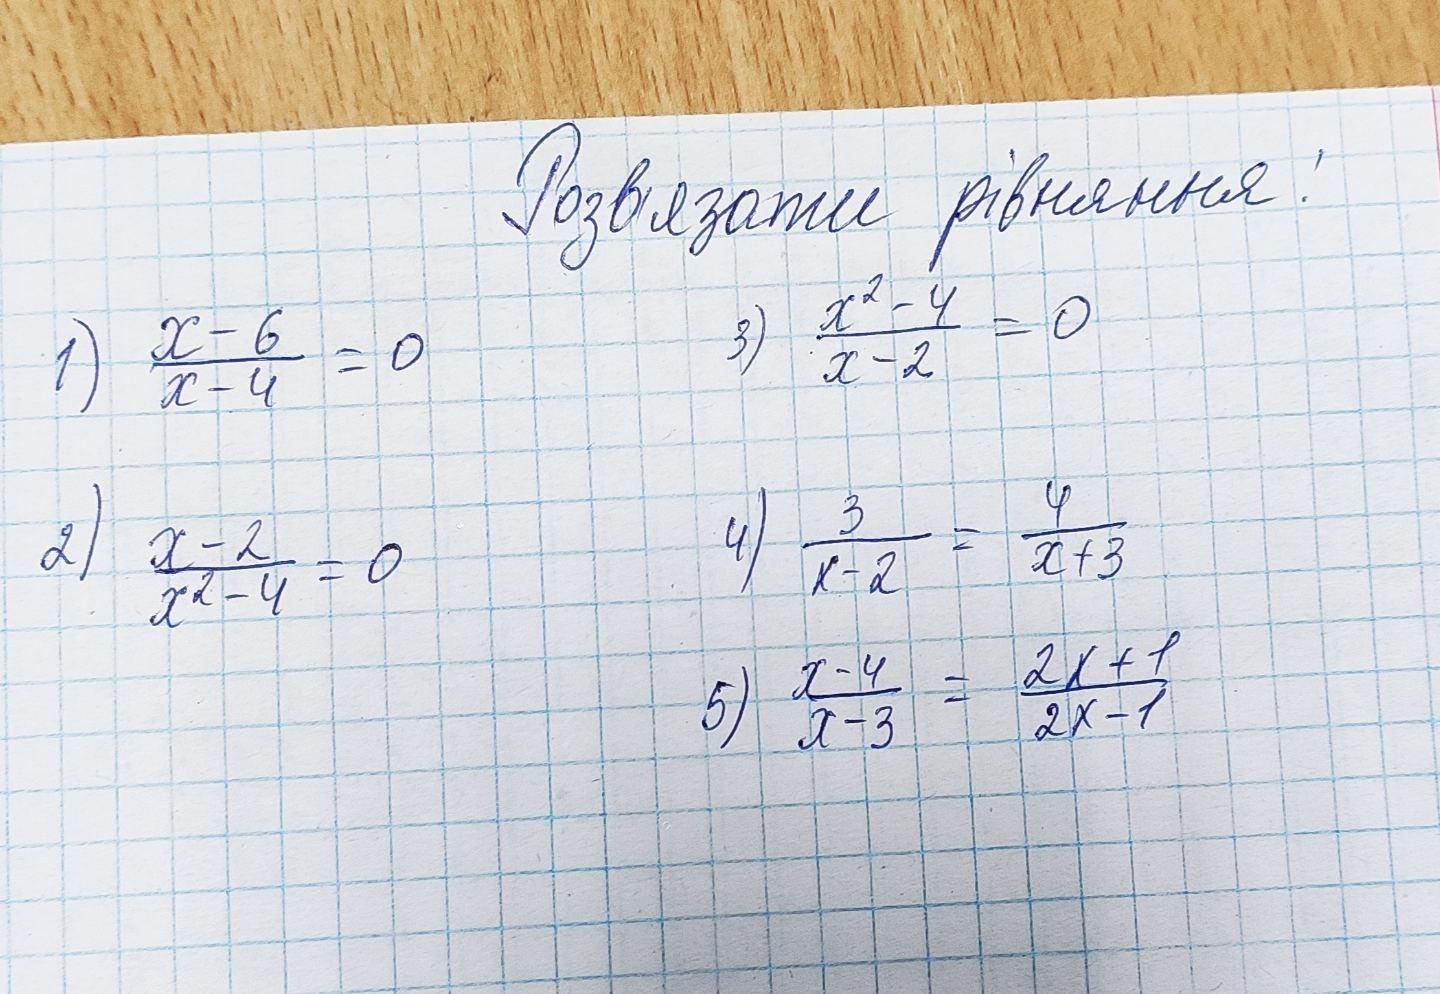 Розв'язати рівняння:
1) (x-6)/(x-4) = 0
2) (x-2)/(x²-4) = 0
3) (x²-4)/(x-2) = 0
4) 3/(x-2) = 4/(x+3)
5) (x-4)/(x-3) = (2x+1)/(2x-1)